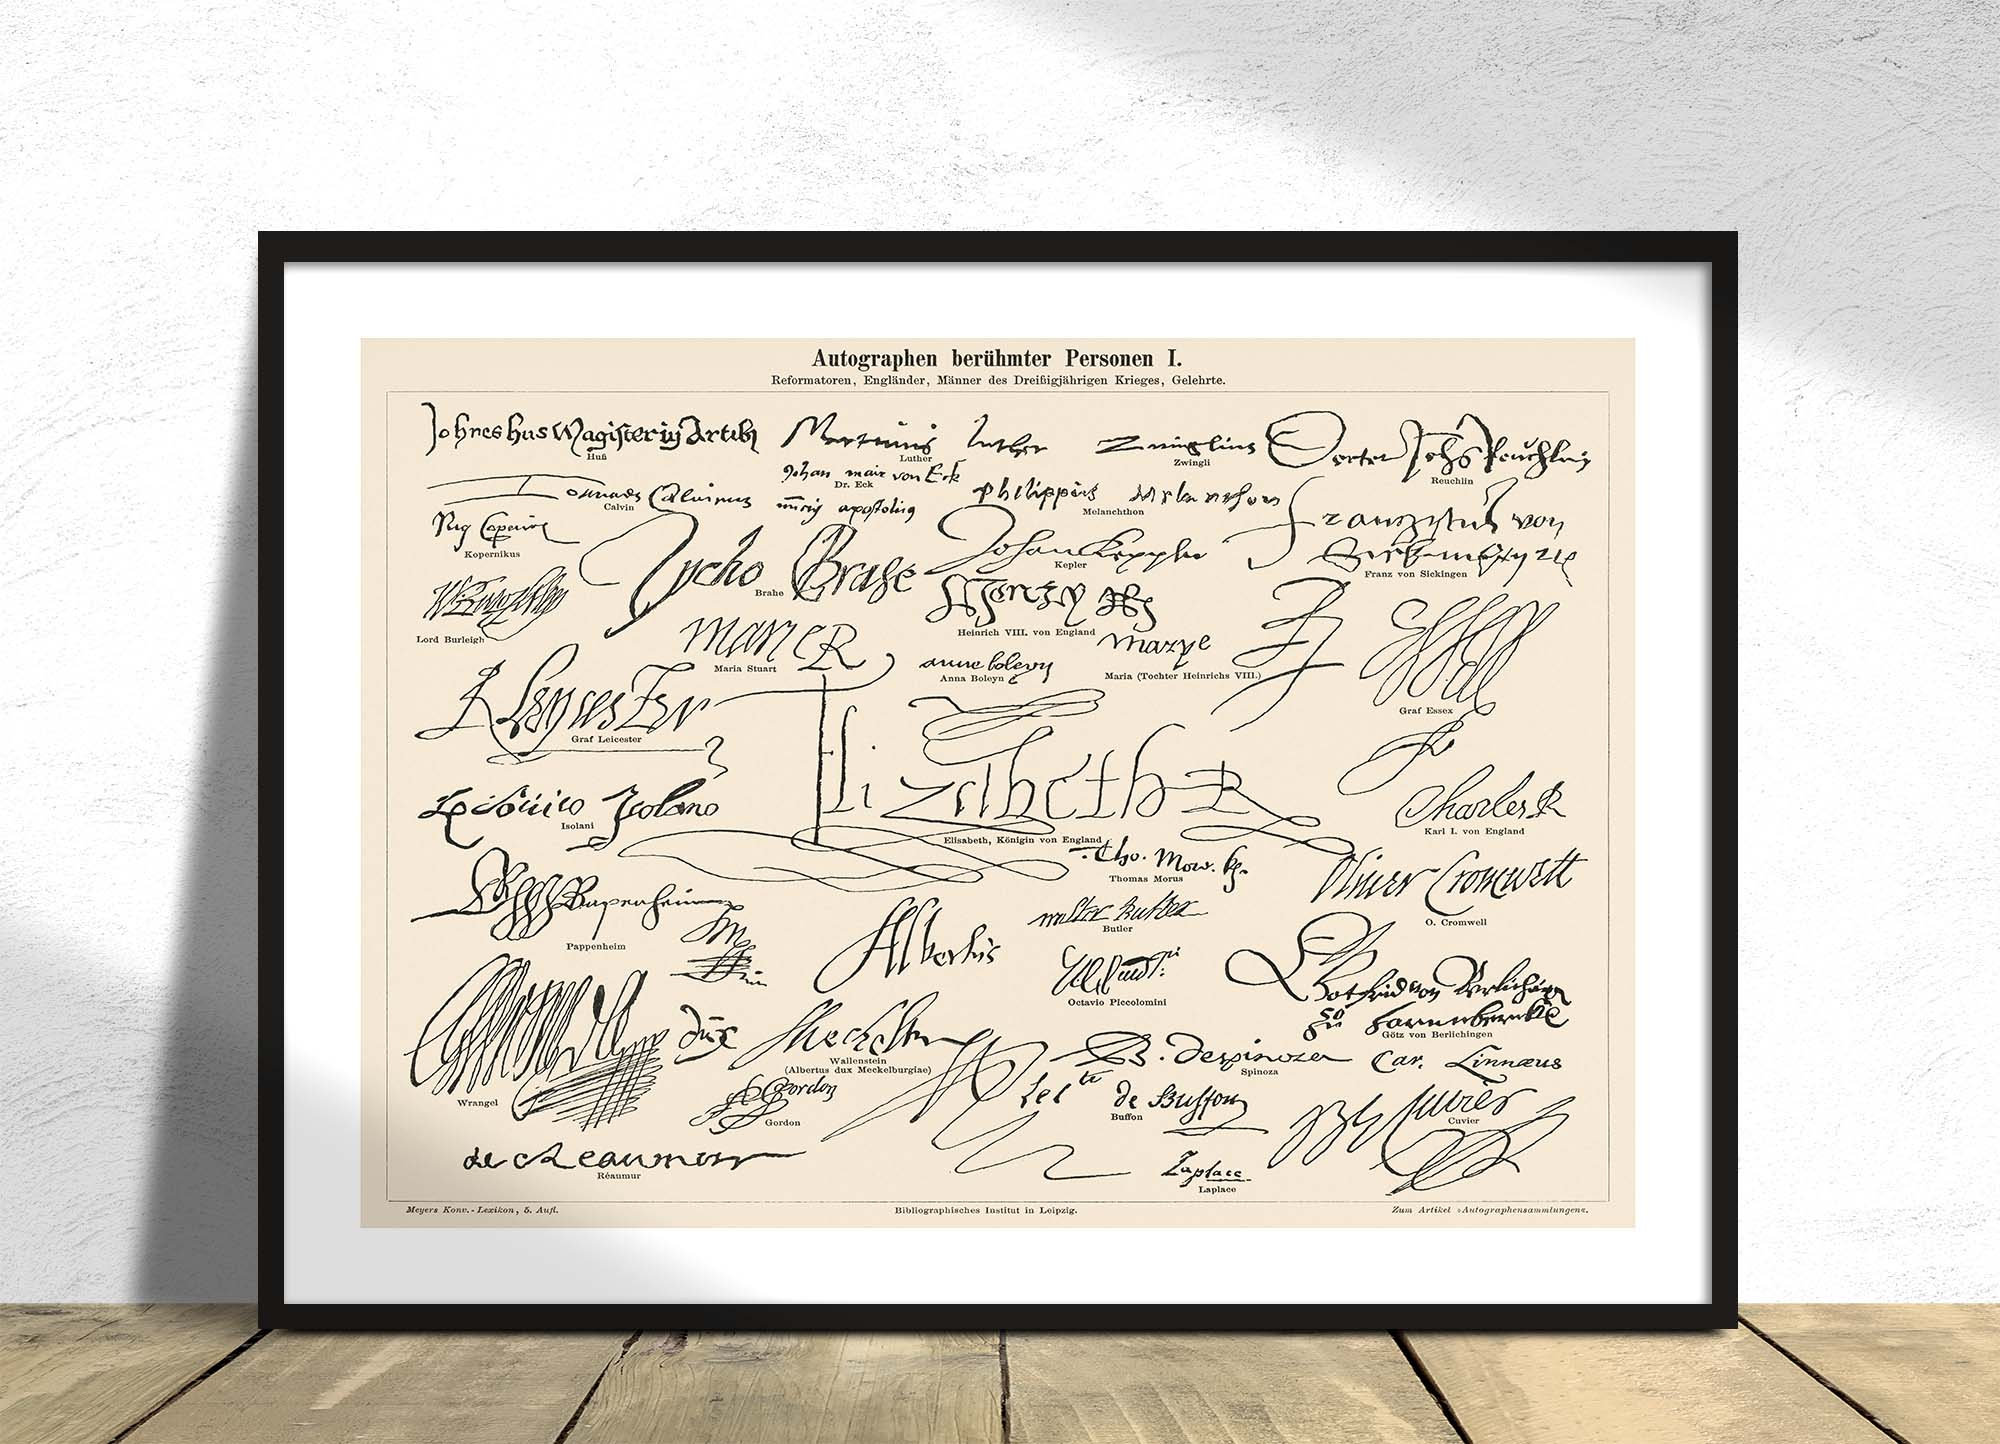 Autographen berühmter Personen I.
Reformatoren, Engländer, Männer des Dreißigjährigen Krieges, Gelehrte.
Johnes hus Magister in Artib
Huß
Martinus Luther
Luther
Zwinglius
Zwingli
Reuchlin
Johan mair von Eck
Dr. Eck
Joannes Calvinus
Calvin
Philippus Melanchthon
Melanchthon
Kopernikus
Tycho Brahe
Brahe
Johan Keppler
Kepler
Franziskus von
Franz von Sickingen
Lord Burleigh
Heinrich VIII. von England
Marie R
Maria Stuart
anne boleyn
Anna Boleyn
marye
Maria (Tochter Heinrichs VIII.)
Essex
Graf Essex
R Leycester
Graf Leicester
Elizabeth R
Elisabeth, Königin von England
Charles R
Karl I. von England
Lodovico Isolano
Isolani
Tho. More kg.
Thomas Morus
Oliver Cromwell
O. Cromwell
Pappenheim
Pappenheim
Albertus
walter butler
Butler
Octavio Piccolomini
Gotfrid von Berlichingen
zu
Götz von Berlichingen
Wrangel
dux
Meckelburgiae
Wallenstein
(Albertus dux Meckelburgiae)
B. despinoza
Spinoza
Car. Linnæus
Gordon
Gordon
Le cte de Buffon
Buffon
Cuvier
Cuvier
de Reaumur
Réaumur
Laplace
Laplace
Meyers Konv.-Lexikon, 5. Aufl.
Bibliographisches Institut in Leipzig.
Zum Artikel »Autographensammlungen«.